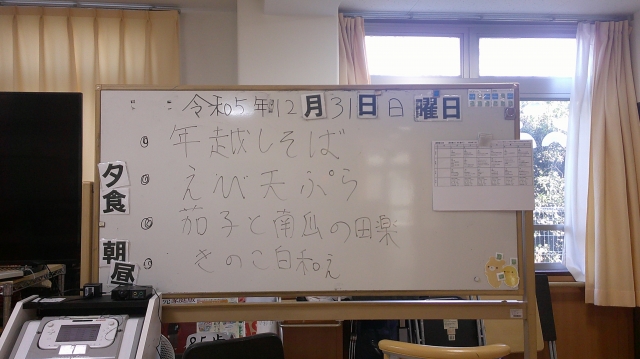 令和5年12月31日日曜日
年越しそば
えび天ぷら
茄子と南瓜の田楽
きのこ白和え
夕食
朝
昼